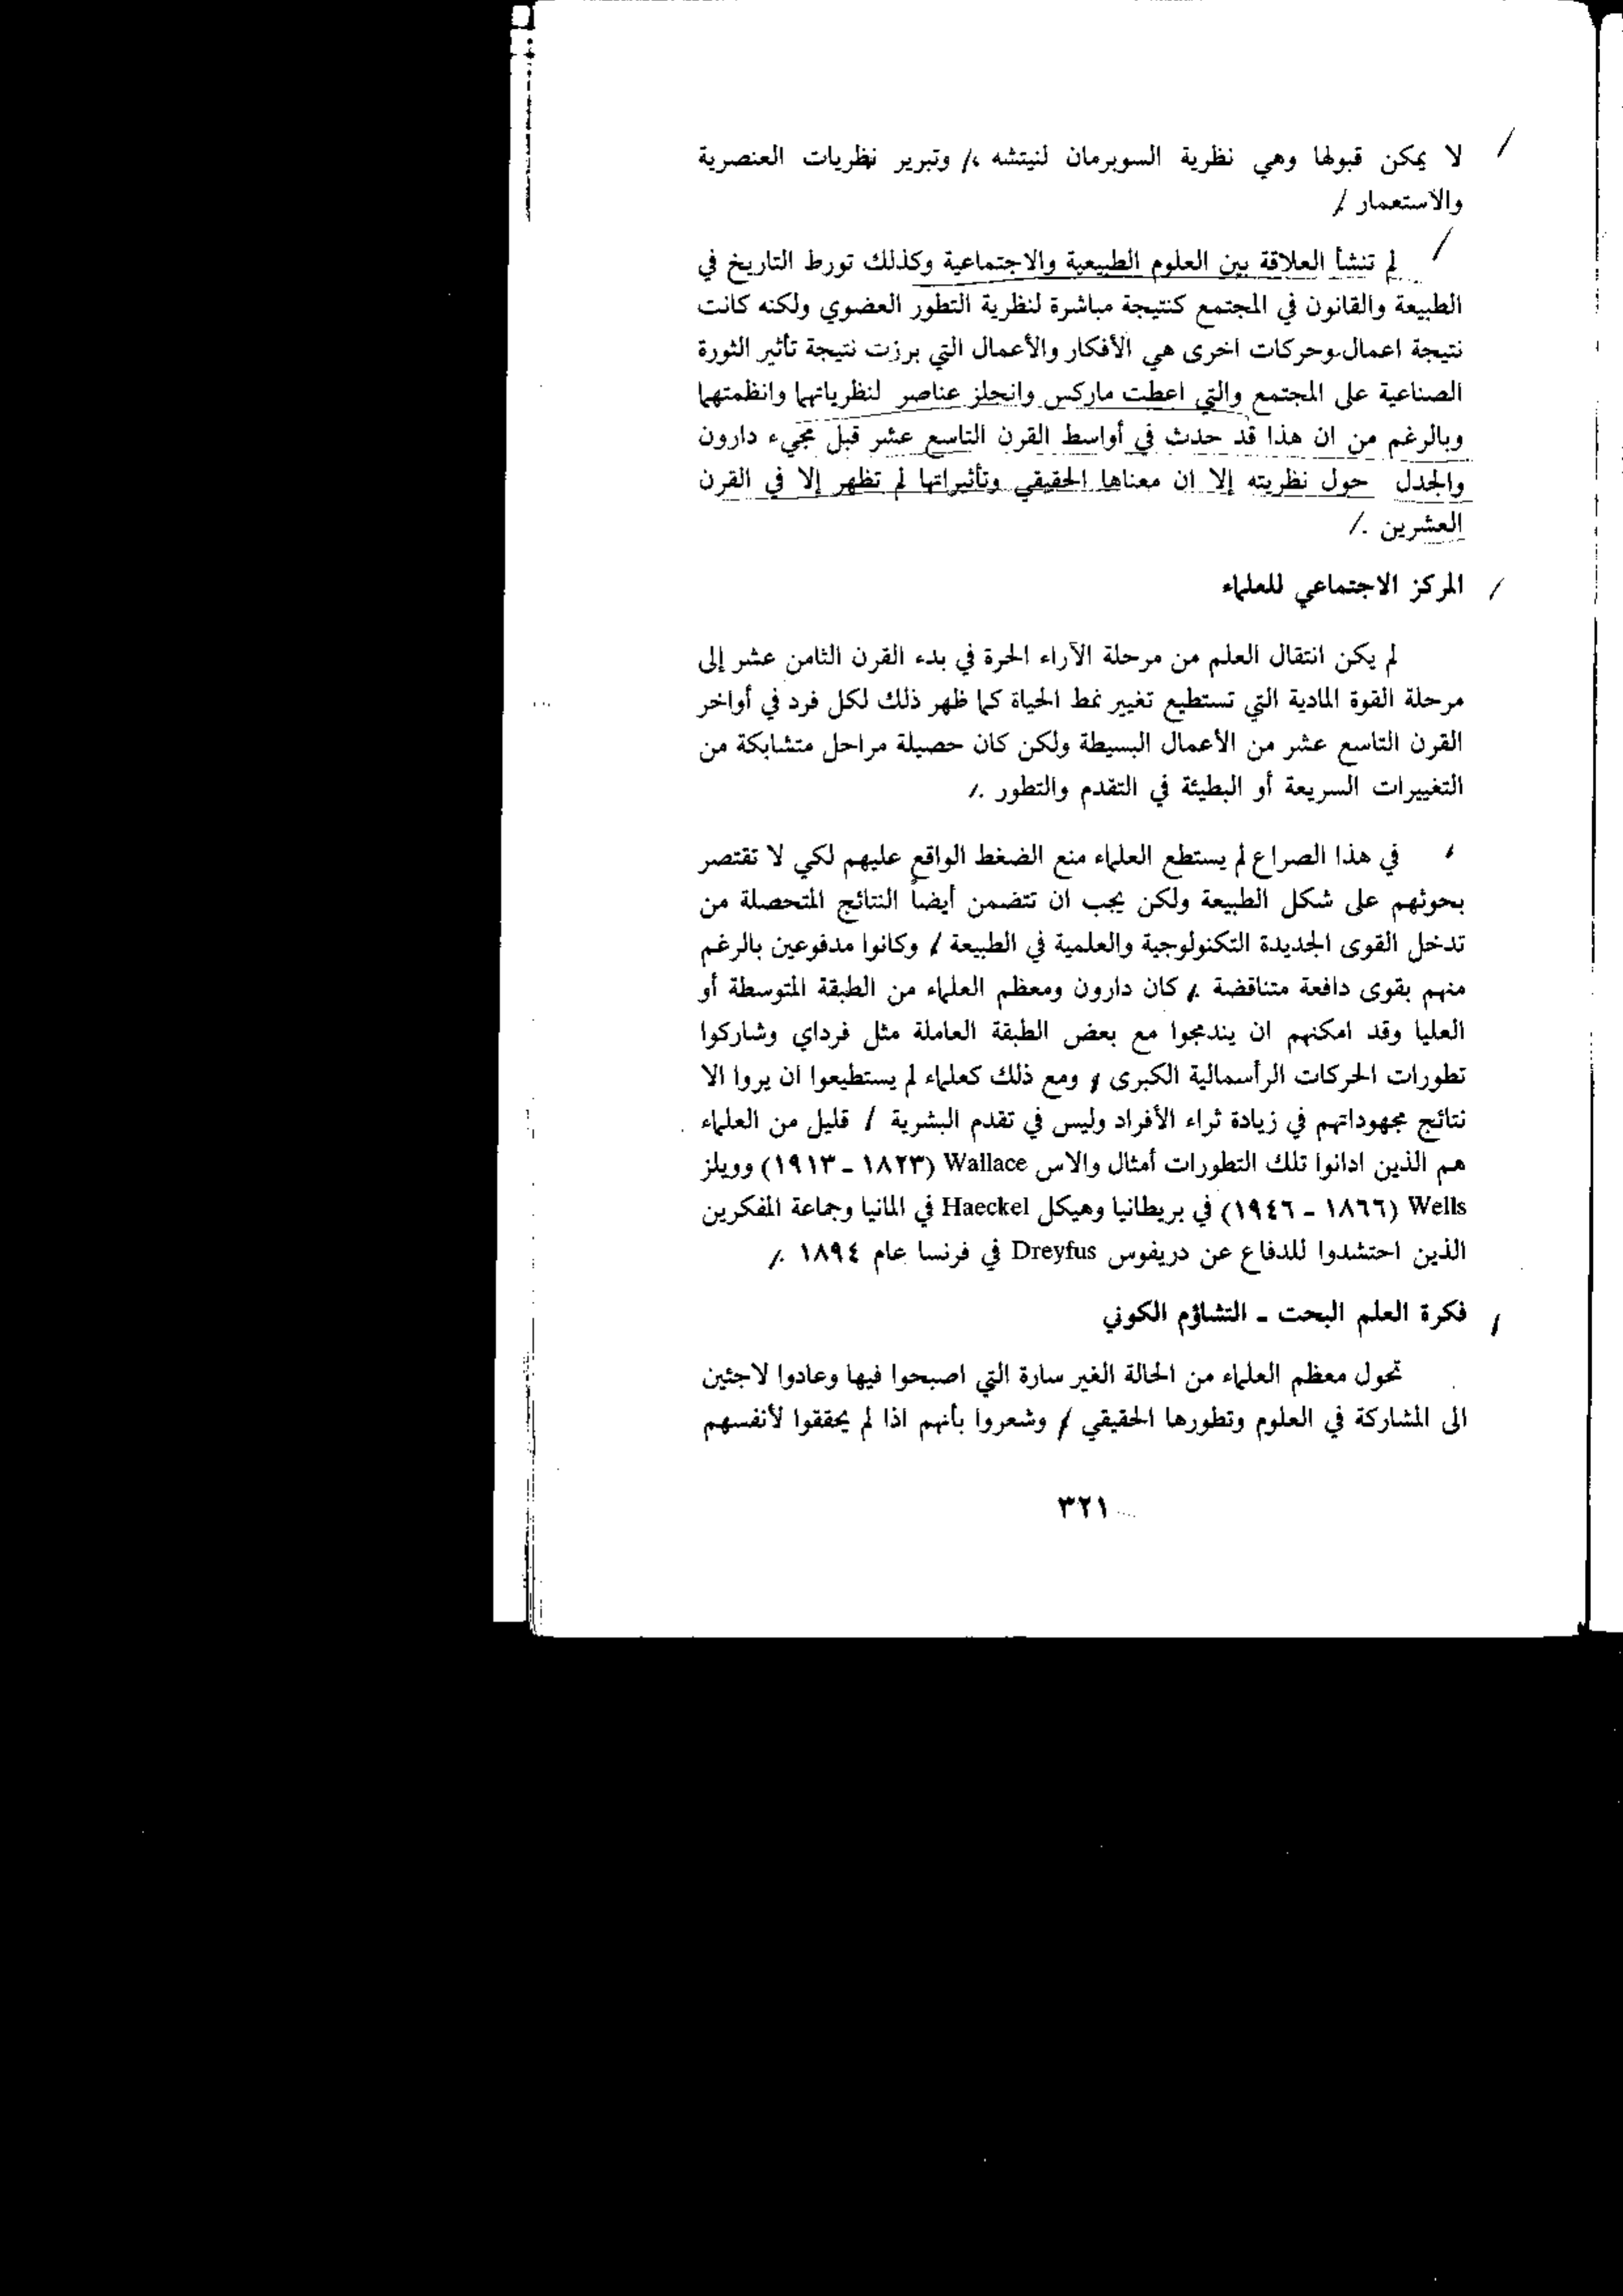 لا يمكن قبولها وهي نظرية السوبرمان لنيتشه ، وتبرير نظريات العنصرية
والاستعمار .
لم تنشأ العلاقة بين العلوم الطبيعية والاجتماعية وكذلك تورط التاريخ في
الطبيعة والقانون في المجتمع كنتيجة مباشرة لنظرية التطور العضوي ولكنه كانت
نتيجة اعمال وحركات اخرى هي الأفكار والأعمال التي برزت نتيجة تأثير الثورة
الصناعية على المجتمع والتي اعطت ماركس وانجلز عناصر لنظرياتهما وانظمتهما
وبالرغم من ان هذا قد حدث في أواسط القرن التاسع عشر قبل مجيء دارون
والجدل حول نظريته إلا ان معناها الحقيقي وتأثيراتها لم تظهر إلا في القرن
العشرين .
المركز الاجتماعي للعلماء
لم يكن انتقال العلم من مرحلة الآراء الحرة في بدء القرن الثامن عشر إلى
مرحلة القوة المادية التي تستطيع تغيير نمط الحياة كما ظهر ذلك لكل فرد في أواخر
القرن التاسع عشر من الأعمال البسيطة ولكن كان حصيلة مراحل متشابكة من
التغييرات السريعة أو البطيئة في التقدم والتطور .
في هذا الصراع لم يستطع العلماء منع الضغط الواقع عليهم لكي لا تقتصر
بحوثهم على شكل الطبيعة ولكن يجب ان تتضمن أيضاً النتائج المتحصلة من
تدخل القوى الجديدة التكنولوجية والعلمية في الطبيعة / وكانوا مدفوعين بالرغم
منهم بقوى دافعة متناقضة . كان دارون ومعظم العلماء من الطبقة المتوسطة أو
العليا وقد امكنهم ان يندمجوا مع بعض الطبقة العاملة مثل فرداي وشاركوا
تطورات الحركات الرأسمالية الكبرى ، ومع ذلك كعلماء لم يستطيعوا ان يروا الا
نتائج مجهوداتهم في زيادة ثراء الأفراد وليس في تقدم البشرية / قليل من العلماء
هم الذين ادانوا تلك التطورات أمثال والاس Wallace (١٨٢٣ - ١٩١٣) وويلز
Wells (١٨٦٦ - ١٩٤٦) في بريطانيا وهيكل Haeckel في المانيا وجماعة المفكرين
الذين احتشدوا للدفاع عن دريفوس Dreyfus في فرنسا عام ١٨٩٤ .
فكرة العلم البحت - التشاؤم الكوني
تحول معظم العلماء من الحالة الغير سارة التي اصبحوا فيها وعادوا لاجئين
الى المشاركة في العلوم وتطورها الحقيقي / وشعروا بأنهم اذا لم يحققوا لأنفسهم
٣٢١